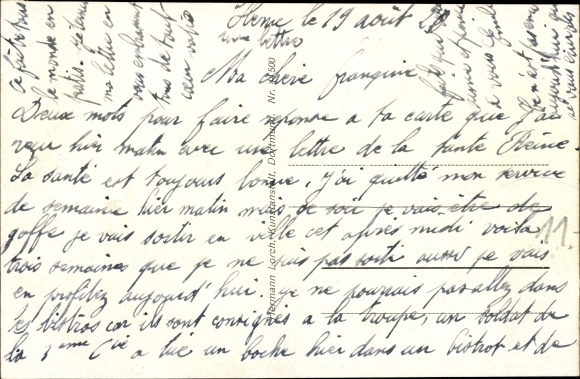 Herne le 19 août 2
une lettre
Ma chère françine
Deux mots pour faire réponse a ta carte que j'ai
reçu hier matin avec une lettre de la tante Reine.
La santé est toujours bonne, j'ai quitté mon service
de semaine hier matin mais ce soir je vais être de
je vais sortir en ville cet après midi voila
trois semaines que je ne suis pas sorti aussi je vais
en profitez aujourd'hui. je ne pourrais pas allez dans
les bistros car ils sont consignés a la troupe, un soldat de
la 3ème Cie a tué un boche hier dans un bistrot et de
ce monde en
ma lettre en
vous embrassant
tous de tout
cœur
a vous
aujourd'hui qui
Hermann Lorch, Kunstanstalt, Dortmund. Nr. 500
11.-